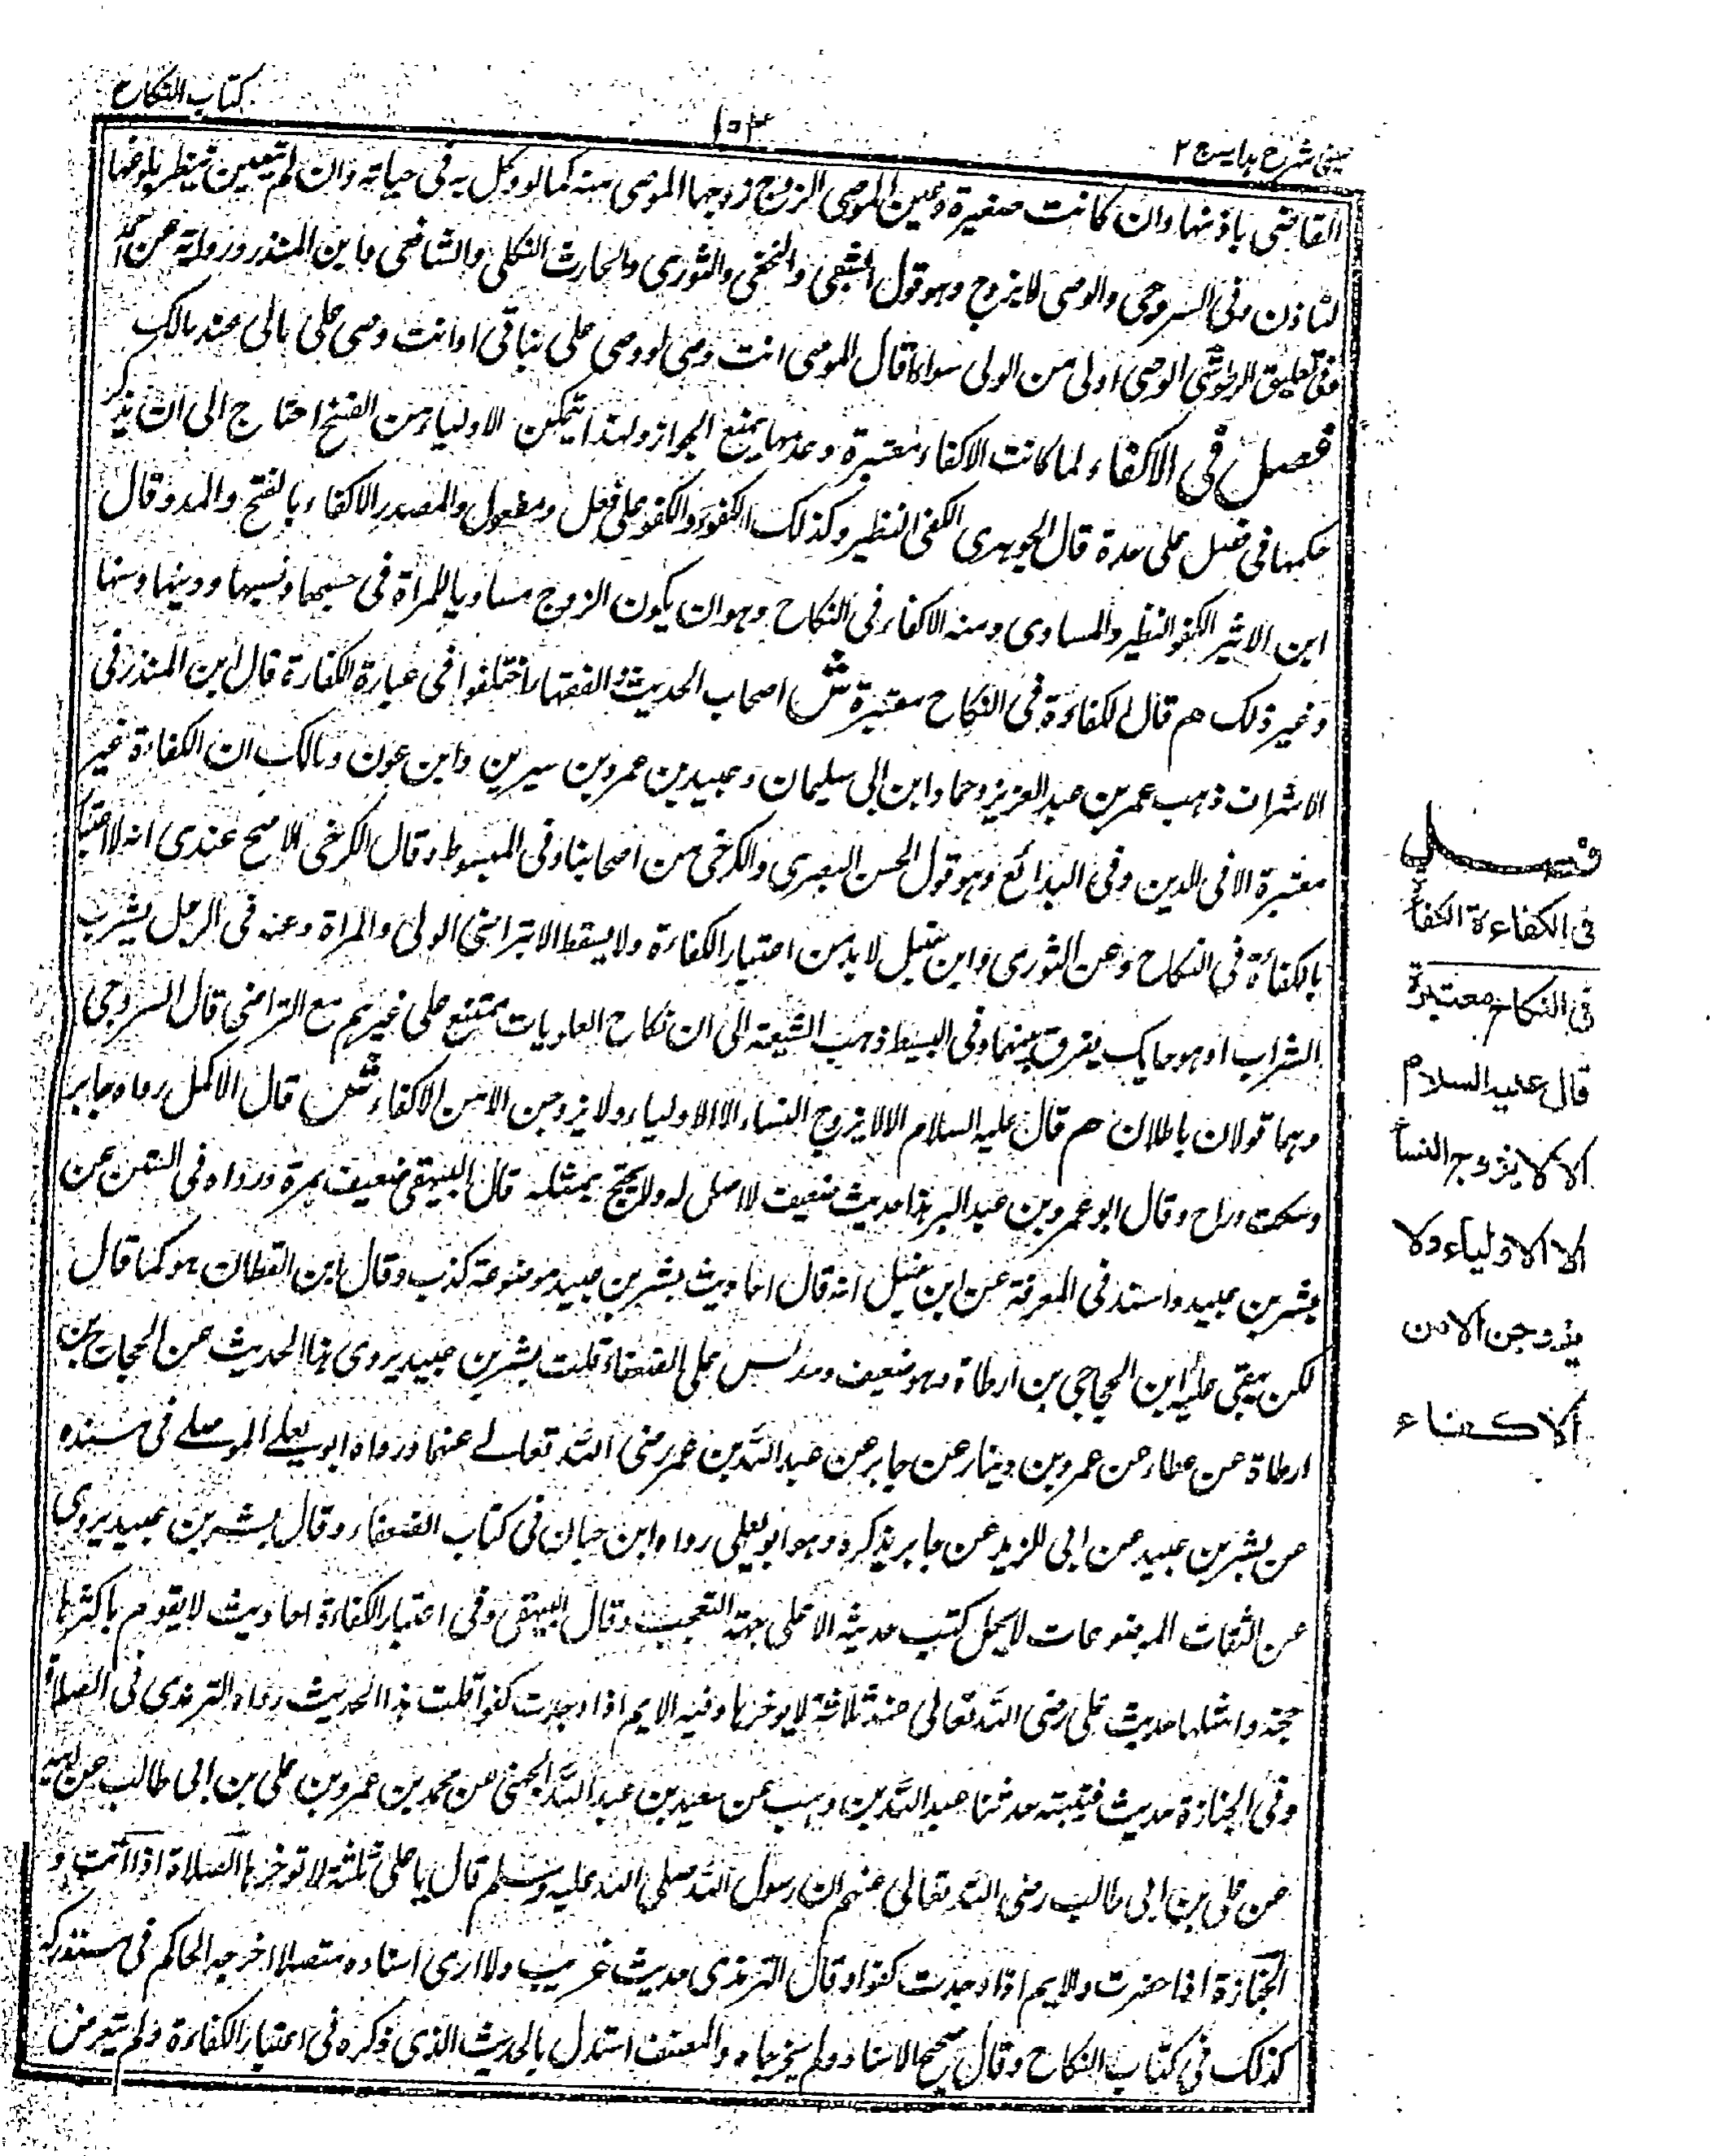 كتاب النكاح
١٠٣
عينى شرح هدايہ ج ٢
القاضى باذنها وان كانت صغيرة وعين الموصى الزوج زوجها الموصى منه كما لو وكل به فى حياته وان لم تعيين ينظر بلوغها
لتاذن وفى السروجى والوصى لا يزوج وهو قول الشعبى والنخعى والثورى والحارث العكلى والشافعى وابن المنذر ورواية عن احمد
وفى تعليق الطرطوشى الوصى اولى من الولى سواء قال الموصى انت وصى لو وصى على بناتى او انت وصى على مالى عند مالك
فصل فى الاكفاء لما كانت الاكفاء معتبرة وعدمها يمنع الجواز ولهذا يتمكن الاولياء من الفسخ احتاج الى ان يذكر
حكمها فى فصل على حدة قال الجوهرى الكفى النظير وكذلك الكفوء والكفو على فعل ومفعول والمصدر الاكفاء بالفتح والمد وقال
ابن الاثير الكفو النظير والمساوى ومنه الاكفاء فى النكاح وهو ان يكون الزوج مساويا للمرأة فى حسبها ونسبها ودينها وسنها
وغير ذلك هم قال الكفاءة فى النكاح معتبرة ش اصحاب الحديث والفقهاء اختلفوا فى عبارة الكفارة قال ابن المنذر فى
الاشراف ذهب عمر بن عبد العزيز وحماد ابن ابى سليمان وعبيد بن عمرو بن سيرين وابن عون ومالك ان الكفاءة غير
معتبرة الا فى الدين وفى البدائع وهو قول الحسن البصرى والكرخى من اصحابنا وفى المبسوط وقال الكرخى الاصح عندى انه لا اعتبار
بالكفاءة فى النكاح وعن الثورى وابن حنبل لا بد من اعتبار الكفاءة ولا يسقط الا بتراضى الولى والمراة وعنه فى الرجل يشرب
الشراب او هو حايك يفرق بينهما وفى البسيط ذهب الشيعة الى ان نكاح العلويات ممتنع على غيرهم مع التراضى قال السروجى
وهما قولان باطلان هم قال عليه السلام الا لا يزوج النساء الا الاولياء ولا يزوجن الا من الاكفاء ش قال الاكمل رواه جابر
وسكت وراح وقال ابو عمرو بن عبد البر هذا حديث ضعيف لا اصل له ولا يحتج بمثله قال البيهقى ضعيف بمرة ورواه فى السنن عن
بشر بن عبيد واسند فى المعرفة عن ابن حنبل انه قال احاديث بشر بن عبيد موضوعة كذب وقال ابن القطان هو كما قال
لكن بقى عليه ابن الحجاج بن ارطاة وهو ضعيف ومدلس على الضعفاء قلت بشر بن عبيد يروى هذا الحديث عن الحجاج بن
ارطاة عن عطاء عن عمرو بن دينار عن جابر عن عبد الله بن عمر رضى الله تعالے عنهما ورواه ابو يعلے الموصلے فى مسنده
عن بشر بن عبيد عن ابى الزبير عن جابر يذكره وهو ابو يعلى رواه ابن حبان فى كتاب الضعفاء وقال بشر بن عبيد يروى
عن الثقات الموضوعات لا يحل كتب حديثه الا على جهة التعجب وقال البيهقى وفى اعتبار الكفاءة احاديث لا يقوم باكثرها
حجة وامثلها حديث على رضى الله تعالى عنه ثلاثة لا يوخرها وفيه الايم اذا وجدت كفوا قلت هذا الحديث رواه الترمذى فى الصلاة
وفى الجنازة حديث قتيبة حدثنا عبد الله بن وهب عن سعيد بن عبد الله الجهنى عن محمد بن عمرو بن على بن ابى طالب عن ابيه
عن على بن ابى طالب رضى الله تعالى عنهم ان رسول الله صلى الله عليه وسلم قال يا على ثلثة لا توخرها الصلاة اذا اتت و
الجنازة اذا حضرت والايم اذا وجدت كفوا وقال الترمذى حديث غريب ولا ارى اسناده متصلا اخرجه الحاكم فى مستدركه
كذلك فى كتاب النكاح وقال صحيح الاسناد ولم يخرجاه والمصنف استدل بالحديث الذى ذكره فى اعتبار الكفاءة ولم يتعرض
فصل
فى الكفاءة الكفأ
فى النكاح معتبرة
قال عليه السلام
الا لا يزوج النسأ
الا الاولياء ولا
يزوجن الا من
الاكفاء